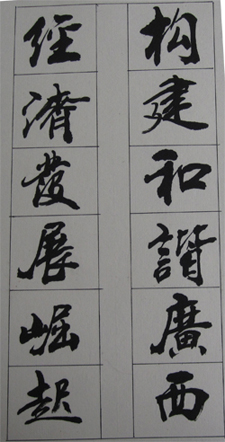 构建和諧廣西
經濟發展崛起